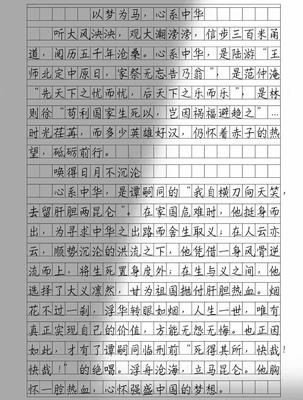 以梦为马，心系中华
听大风泱泱，观大潮滂滂，信步三百米甬
道，阅历五千年沧桑。心系中华，是陆游“王
师北定中原日，家祭无忘告乃翁”，是范仲淹
“先天下之忧而忧，后天下之乐而乐”，是林
则徐“苟利国家生死以，岂因祸福避趋之”…
时光荏苒，而多少英雄好汉，仍怀着赤子的热
望，砥砺前行。
唤得日月不沉沦
心系中华，是谭嗣同的“我自横刀向天笑，
去留肝胆两昆仑”。在家国危难时，他挺身而
出，为寻求中华之出路而舍生取义；在人云亦
云，顺势沉沦的洪流之下，他凭借一身风骨逆
流而上，将生死置身度外；在生与义之间，他
选择了大义凛然，甘为祖国抛付肝胆热血。烟
花不过一刹，浮华转眼如烟，人生一世，唯有
真正实现自己的价值，方能无怨无悔。也正因
如此，才有了谭嗣同临刑前“死得其所，快哉！
快哉！”的绝唱。浮舟沧海，立马昆仑。他胸
怀一腔热血，心怀强盛中国的梦想。